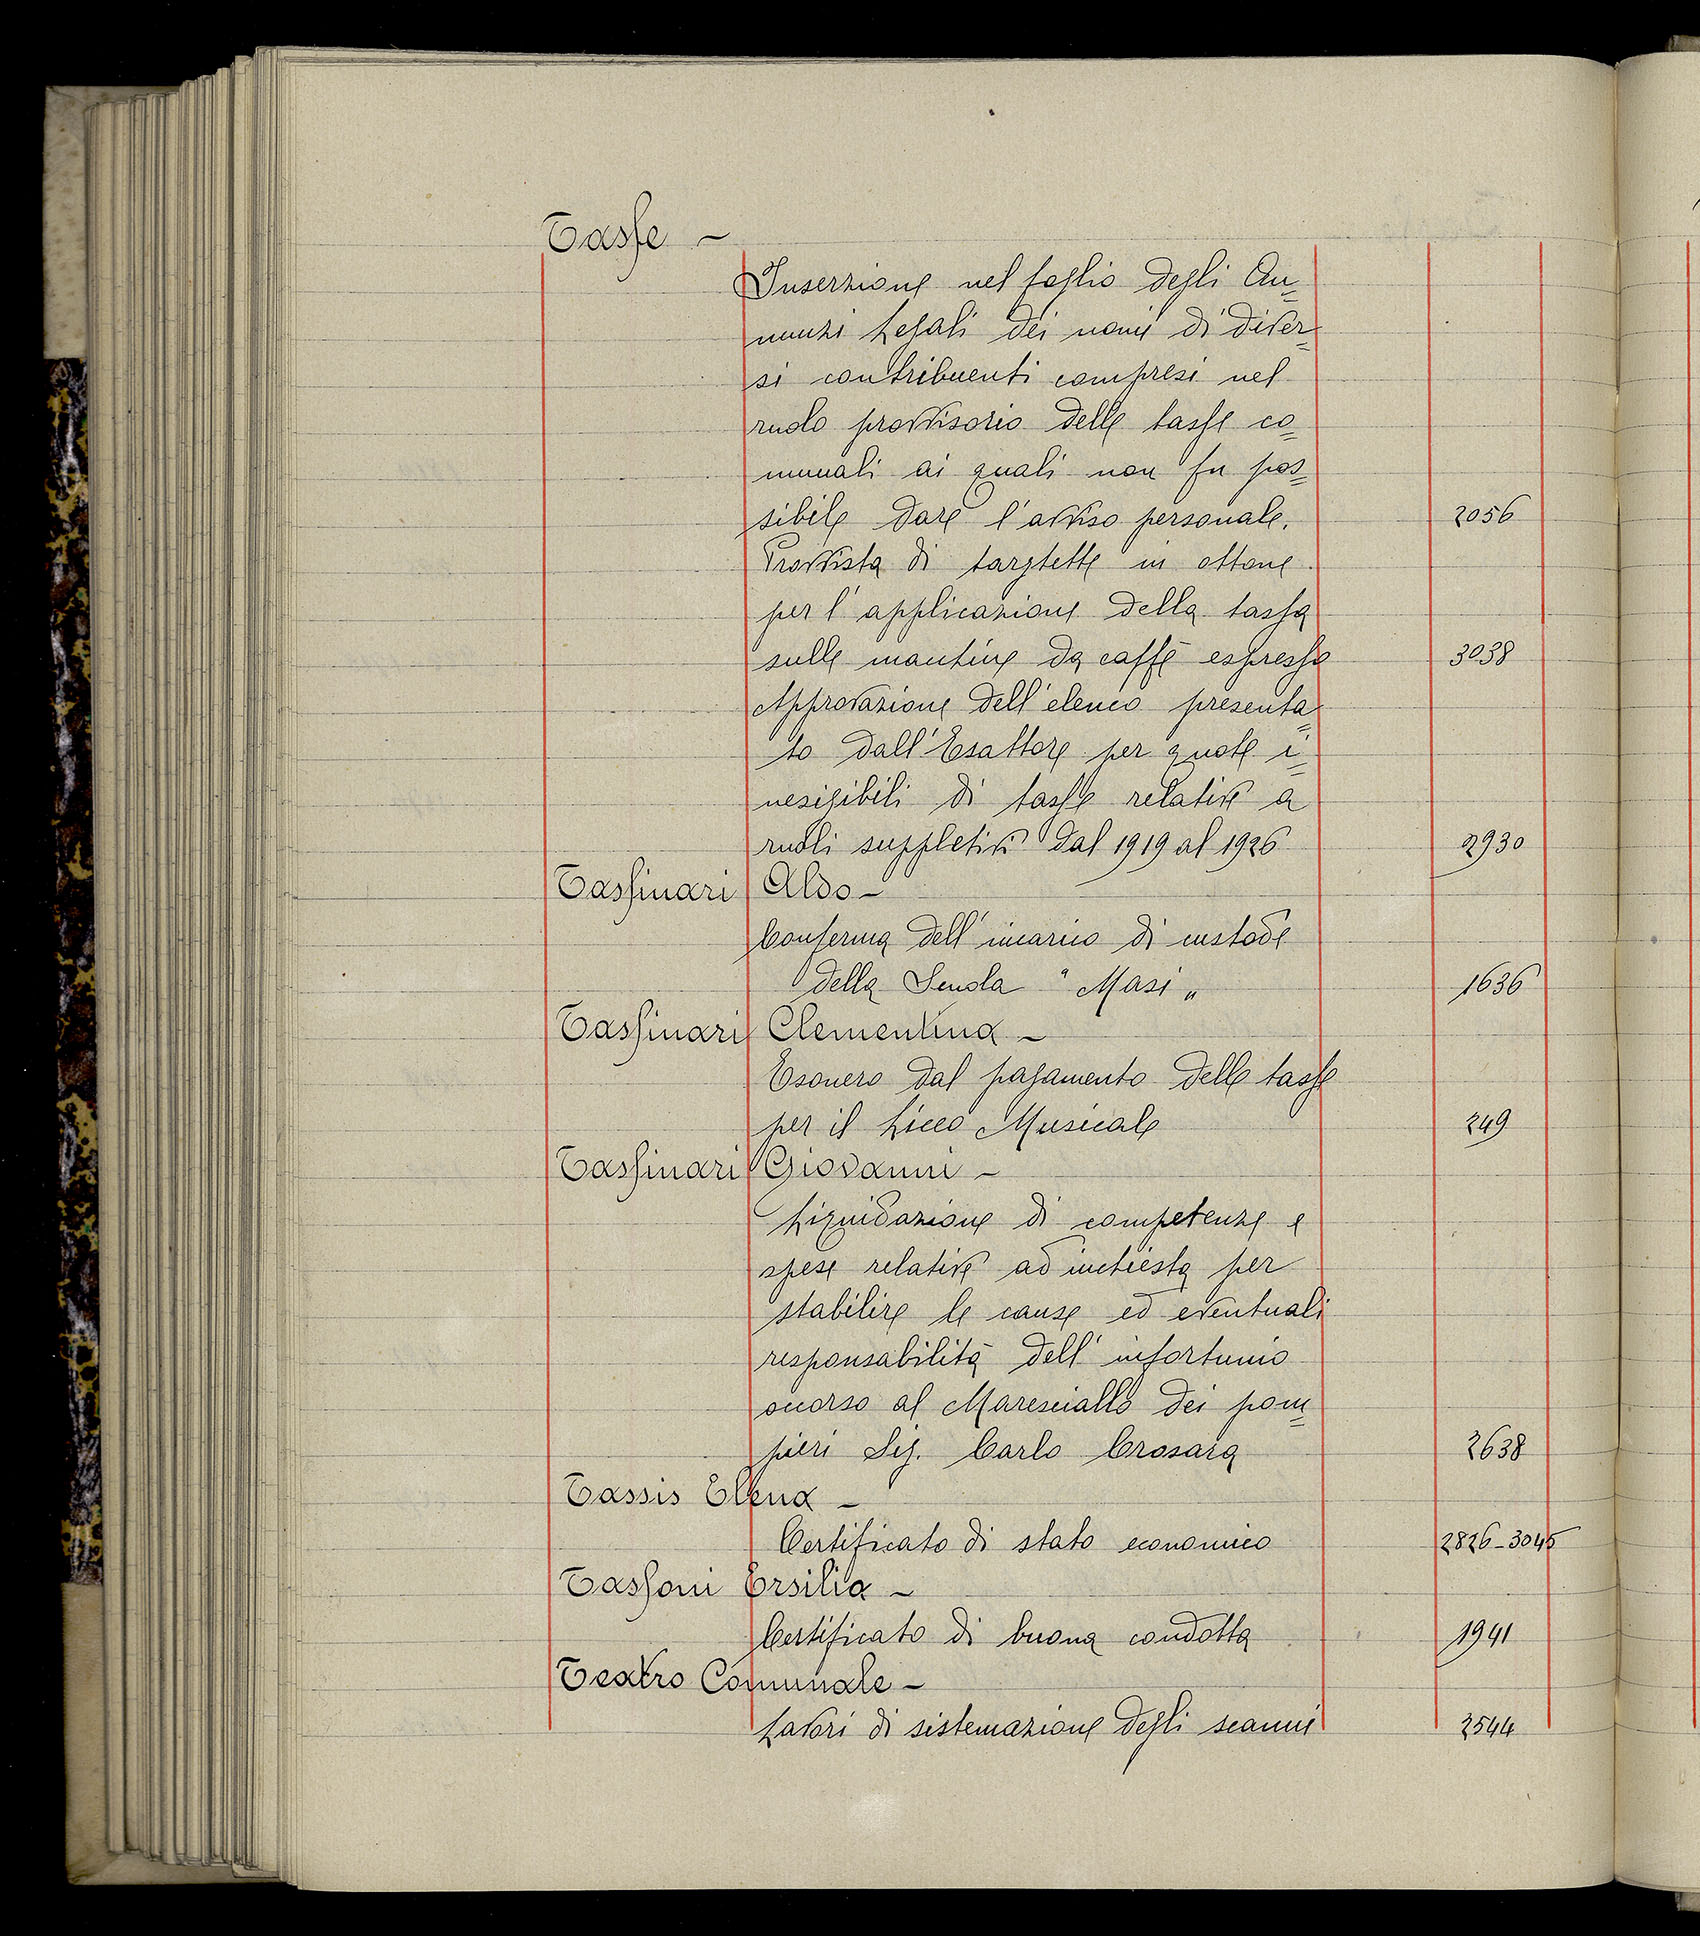 Tasse -
Inserzione nel foglio degli An=
nunzi Legali dei nomi di diver=
si contribuenti compresi nel
ruolo provvisorio delle tasse co=
munali ai quali non fu pos=
sibile dare l'avviso personale. 2056
Provvista di targhette in ottone
per l'applicazione della tassa
sulle macchine da caffè espresso 3038
Approvazione dell'elenco presenta=
to dall'Esattore per quote i=
nesigibili di tasse relative a
ruoli suppletivi dal 1919 al 1926 2930
Tassinari Aldo -
Conferma dell'incarico di custode
della Scuola "Masi" 1636
Tassinari Clementina -
Esonero dal pagamento delle tasse
per il Liceo Musicale 249
Tassinari Giovanni -
Liquidazione di competenze e
spese relative ad inchiesta per
stabilire le cause ed eventuali
responsabilità dell'infortunio
occorso al Maresciallo dei pom=
pieri Sig. Carlo Crosara 2638
Tassis Elena -
Certificato di stato economico 2826-3045
Tassoni Ersilia -
Certificato di buona condotta 1941
Teatro Comunale -
Lavori di sistemazione degli scanni 2544